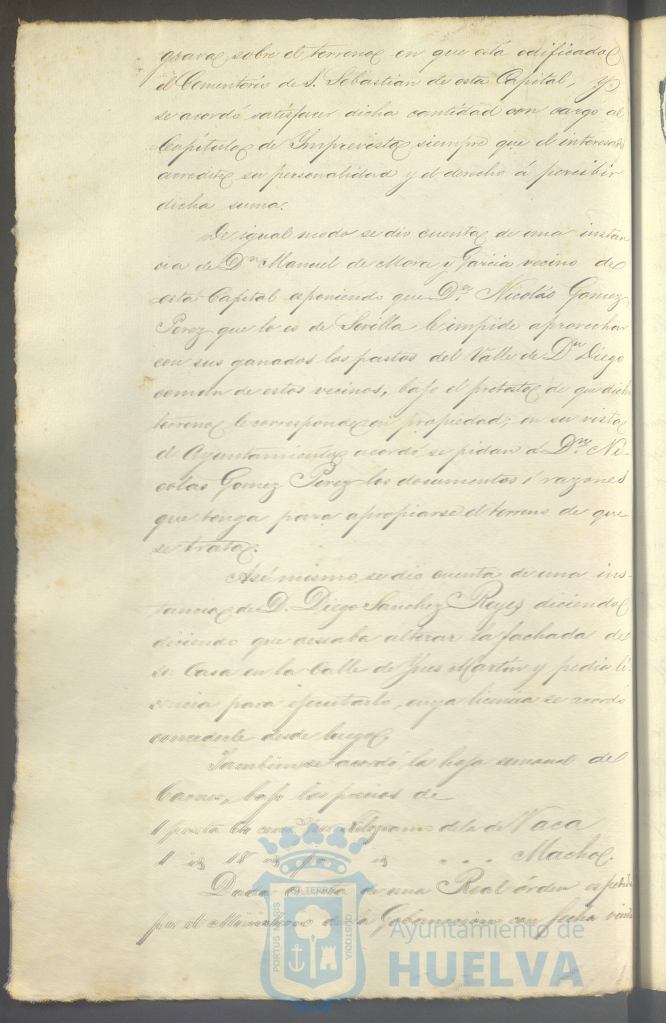 grava, sobre el terreno en que está edificado
el Cementerio de S. Sebastian de esta Capital, y
se acordó satisfacer dicha cantidad con cargo al
Capítulo de Imprevistos siempre que el interesado
acredite su personalidad y el derecho á percibir
dicha suma.
De igual modo se dio cuenta de una instan
cia de Dn. Manuel de Mora y Garcia vecino de
esta Capital esponiendo que Dn. Nicolás Gomez
Perez que lo es de Sevilla le impide aprovechar
con sus ganados los pastos del Valle de Dn. Diego
comun de estos vecinos, bajo el protesto de que dicho
terreno le corresponde en propiedad; en su vista
el Ayuntamiento acordó se pidan á Dn. Ni-
colas Gomez Perez los documentos ó razones
que tenga para apropiarse el terreno de que
se trata.
Asi mismo se dio cuenta de una ins-
tancia de D. Diego Sanchez Reyes diciendo
diciendo que deseaba alterar la fachada de
su Casa en la Calle de Ynes Martin y pedia li-
cencia para ejecutarlo, cuya licencia se acordó
concederle desde luego.
Tambien se acordó la hoja semanal de
Carnes, bajo los precios de
1 peseta cen kilogramo de la de Vaca
1 id 18 id id . . . Macho.
Dada cuenta de una Real órden espedida
por el Ministerio de la Gobernacion con fecha
PORTUS MARIS ET TERRÆ CUSTODIA
Ayuntamiento de
HUELVA